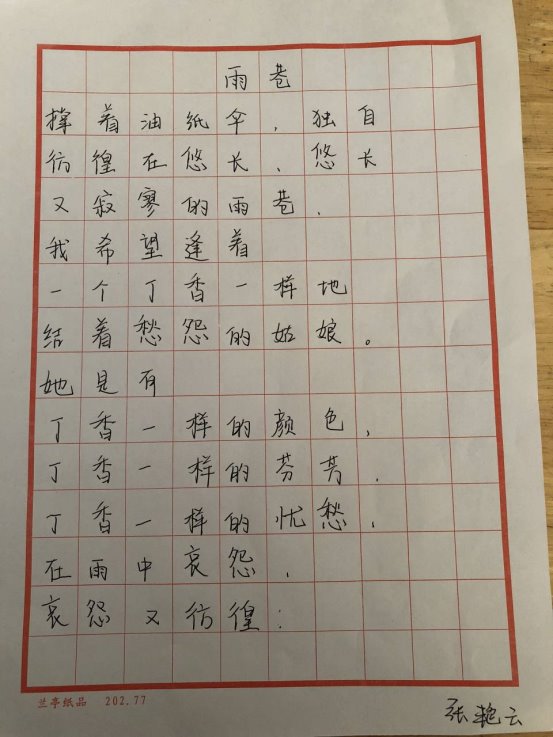 雨巷
撑着油纸伞，独自
彷徨在悠长、悠长
又寂寥的雨巷，
我希望逢着
一个丁香一样地
结着愁怨的姑娘。
她是有
丁香一样的颜色，
丁香一样的芬芳，
丁香一样的忧愁，
在雨中哀怨，
哀怨又彷徨：
兰亭纸品 202.77
张艳云